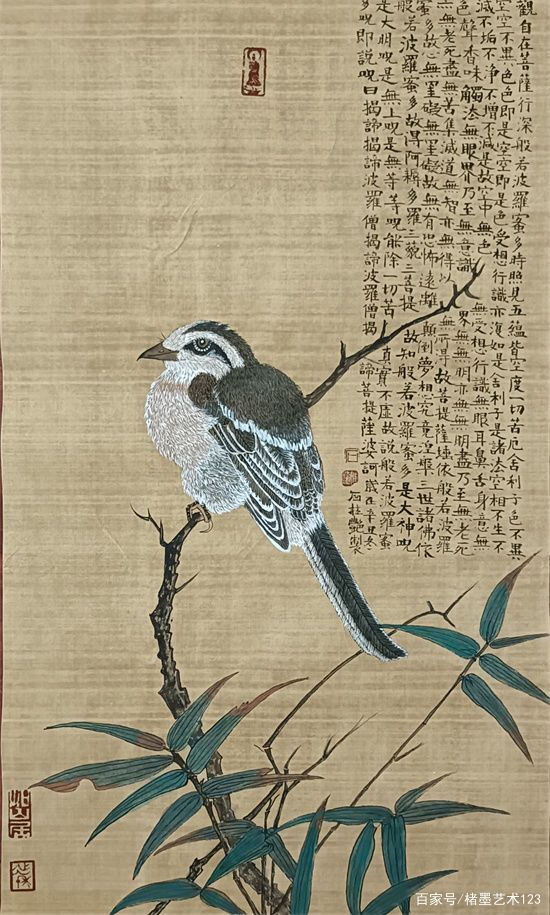 觀自在菩薩行深般若波羅蜜多時照見五蘊皆空度一切苦厄舍利子色不異
空空不異色色即是空空即是色受想行識亦復如是舍利子是諸法空相不生不
滅不垢不淨不增不減是故空中無色無受想行識無眼耳鼻舌身意無
色聲香味觸法無眼界乃至無意識界無無明亦無無明盡乃至無老死
亦無老死盡無苦集滅道無智亦無得以無所得故菩提薩埵依般若波羅
蜜多故心無罣礙無罣礙故無有恐怖遠離顛倒夢想究竟涅槃三世諸佛依
般若波羅蜜多故得阿耨多羅三藐三菩提故知般若波羅蜜多是大神呪
是大明呪是無上呪是無等等呪能除一切苦真實不虛故說般若波羅蜜
多呪即說呪曰揭諦揭諦波羅僧揭諦波羅僧揭諦菩提薩婆訶歲在辛丑冬
石桂艷製
百家号/楮墨艺术123